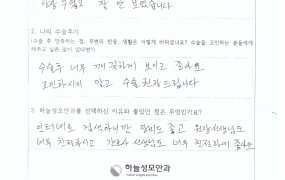 잘 안 보였습니다
2. 나의 수술후기
(수술 후 만족하는 점, 주변의 반응, 생활은 어떻게 바뀌었나요? 수술을 고민하는 분들에게
해주고 싶은 말이 있다면?)
수술후 너무 깨끗하게 보이고 좋아요
고민하시지 말고 수술 추천드립니다
3. 하늘성모안과를 선택하신 이유와 좋았던 점은 무엇인가요?
인터네로 검색하니깐 장비도 좋고 원장선생님도
너무 친절하시고 간호사 선생님도 너무 친절하여 좋아요
하늘성모안과